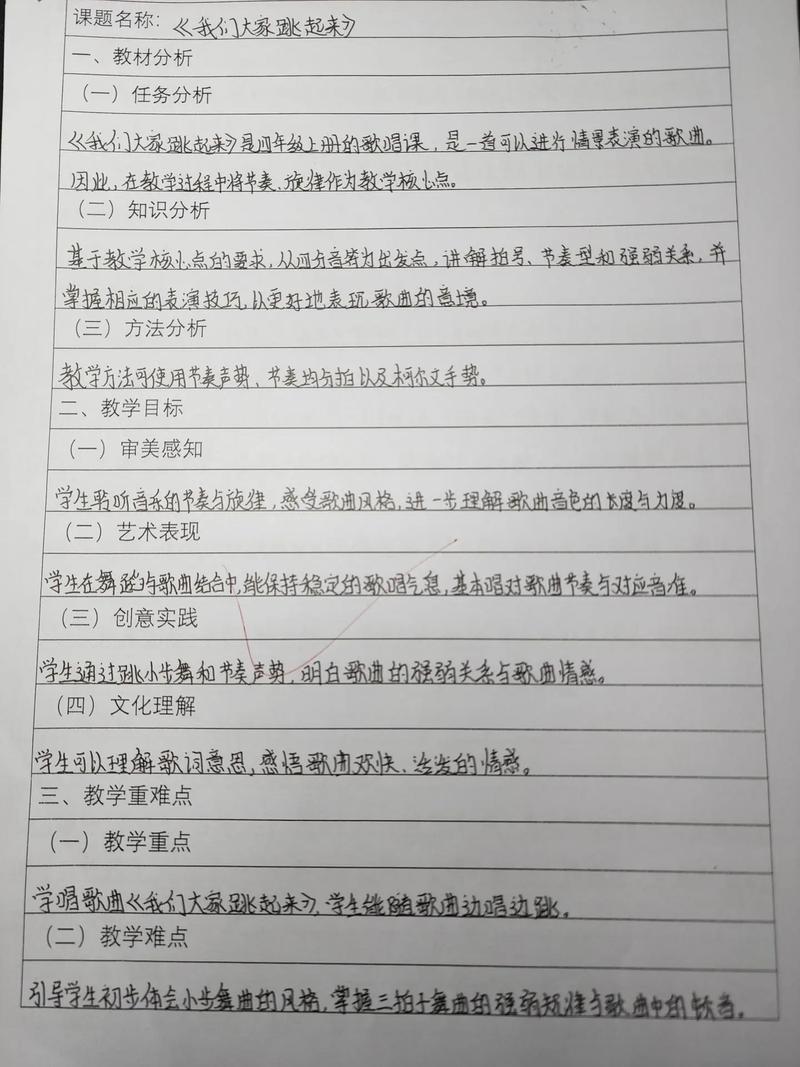 课题名称：《我们大家跳起来》
一、教材分析
（一）任务分析
《我们大家跳起来》是四年级上册的歌唱课，是一首可以进行情景表演的歌曲。
因此，在教学过程中将节奏、旋律作为教学核心点。
（二）知识分析
基于教学核心点的要求，从四分音符为出发点，讲解拍号、节奏型和强弱关系，并
掌握相应的表演技巧，以更好地表现歌曲的意境。
（三）方法分析
教学方法可使用节奏声势、节奏均匀拍以及柯尔文手势。
二、教学目标
（一）审美感知
学生聆听音乐的节奏与旋律，感受歌曲风格，进一步理解歌曲音色的长度与力度。
（二）艺术表现
学生在舞蹈与歌曲结合中，能保持稳定的歌唱气息，基本唱对歌曲节奏与对应音准。
（三）创意实践
学生通过跳小步舞和节奏声势，明白歌曲的强弱关系与歌曲情感。
（四）文化理解
学生可以理解歌词意思，感悟歌曲欢快、活泼的情感。
三、教学重难点
（一）教学重点
学唱歌曲《我们大家跳起来》，学生能随歌曲边唱边跳。
（二）教学难点
引导学生初步体会小步舞曲的风格，掌握三拍子舞曲的强弱规律与歌曲中的